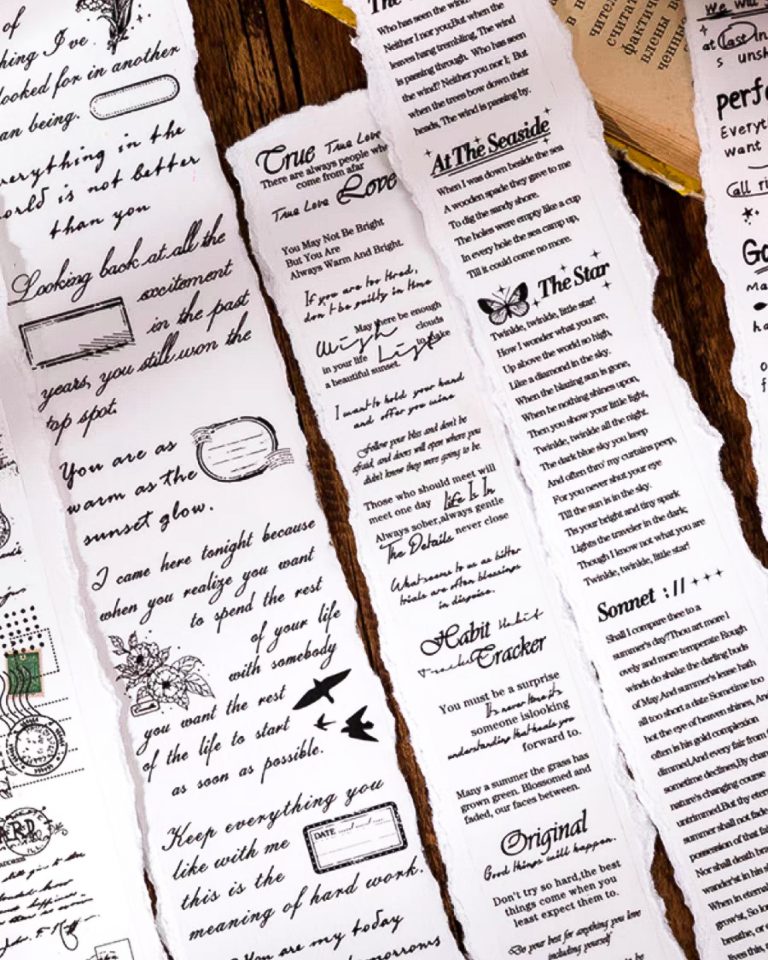 of
thing I've
looked for in another
an being.
everything in the
world is not better
than you
Looking back at all the
excitement
in the past
years, you still won the
top spot.
You are as
warm as the
sunset glow.
I came here tonight because
when you realize you want
to spend the rest
of your life
with somebody
you want the rest
of the life to start
as soon as possible.
Keep everything you
like with me
DATE
this is the
meaning of hard work.
You are my today
True True Love
There are always people who
come from afar
True Love Love
You May Not Be Bright
But You Are
Always Warm And Bright.
If you are too tired,
don't be guilty in time
May there be enough
Wish clouds
in your life Light to make
a beautiful sunset.
I want to hold your hand
and offer you wine
Follow your bliss and don't be
afraid, and doors will open where you
didn't know they were going to be.
Those who should meet will
meet one day Life Is In
Always sober,always gentle
The Details never close
What seems to us as bitter
trials are often blessings
in disguise.
Habit Habit
Tracker Tracker
You must be a surprise
someone islooking
understanding that heals you
forward to.
Many a summer the grass has
grown green. Blossomed and
faded, our faces between.
Original
Good things will happen.
Don't try so hard,the best
things come when you
least expect them to.
Do your best for anything you love
including yourself
The
Who has seen the wind
Neither I nor you;But when the
leaves hang trembling, The wind
is passing through. Who has seen
the wind? Neither you nor I; But
when the trees bow down their
heads, The wind is passing by.
At The Seaside
When I was down beside the sea
A wooden spade they gave to me
To dig the sandy shore.
The holes were empty like a cup
In every hole the sea camp up,
Till it could come no more.
The Star
Twinkle, twinkle, little star!
How I wonder what you are,
Up above the world so high,
Like a diamond in the sky.
When the blazing sun is gone,
When he nothing shines upon,
Then you show your little light,
Twinkle, twinkle all the night.
The dark blue sky you keep
And often thro' my curtains peep,
For you never shut your eye
Till the sun is in the sky.
Tis your bright and tiny spark
Lights the traveler in the dark;
Though I know not what you are
Twinkle, twinkle, little star!
Sonnet ://
Shall I compare thee to a
summer's day?Thou art more l
ovely and more temperate Rough
winds do shake the darling buds
of May,And summer's lease hath
all too short a date Sometime too
hot the eye of heaven shines, And
often is his gold complexion
dimmed,And every fair from f
sometime declines,By ch
nature's changing course
untrimmed.But thy etern
summer shall not fad
possession of that fa
Nor shall death bra
wander'st in his s
When in eternal
grow'st, So lo
breathe, or e
lives this,
считат
фактич
влены в
We will
at last In
s unsh
perfe
Everyt
want
all ri
Go